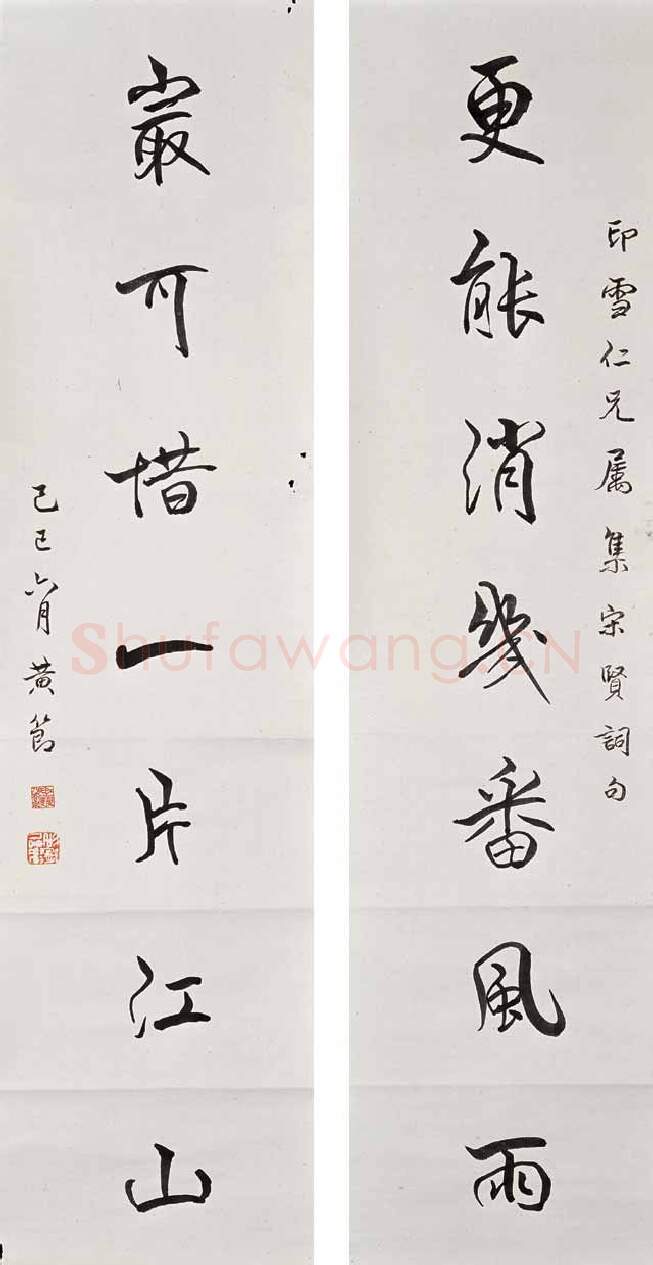 更能消幾番風雨
印雪仁兄属集宋賢詞句
最可惜一片江山
己巳六月黄節
Shufawang.CN